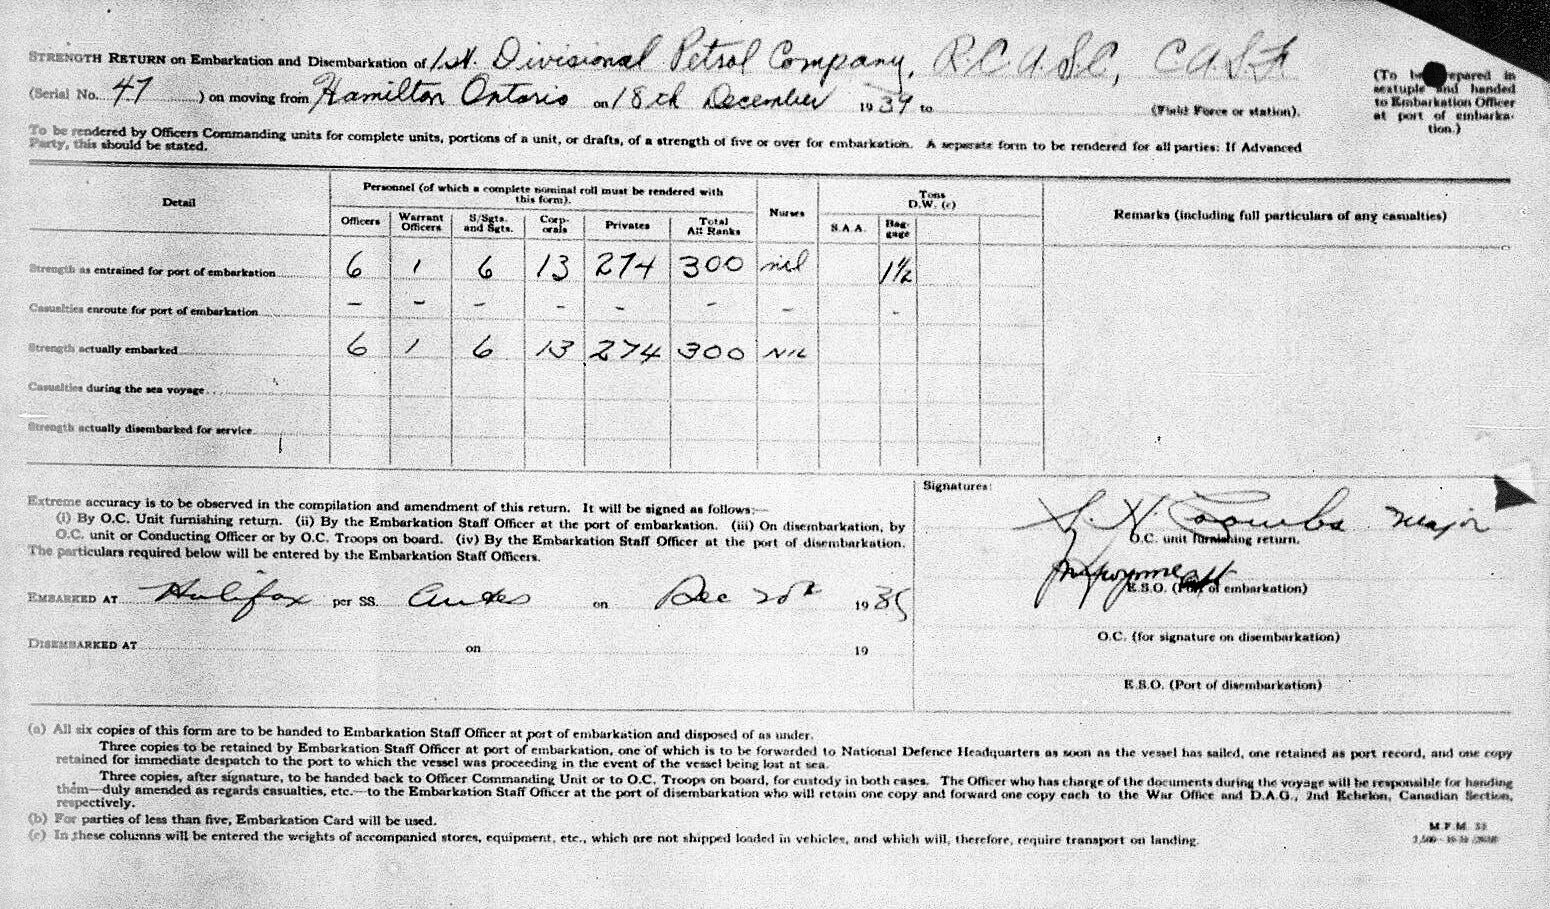 STRENGTH RETURN on Embarkation and Disembarkation of 1st. Divisional Petrol Company, R.C.A.S.C., C.A.S.F.
(Serial No. 47 ) on moving from Hamilton Ontario on 18th December 1939 to (Field Force or station).
(To be prepared in
sextuple and handed
to Embarkation Officer
at port of embarka-
tion.)
To be rendered by Officers Commanding units for complete units, portions of a unit, or drafts, of a strength of five or over for embarkation. A separate form to be rendered for all parties: If Advanced
Party, this should be stated.
Detail
Personnel (of which a complete nominal roll must be rendered with
this form).
Nurses
Tons
D.W. (c)
Remarks (including full particulars of any casualties)
Officers Warrant Officers S/Sgts. and Sgts. Corp- orals Privates Total All Ranks S.A.A. Bag- gage
Strength as entrained for port of embarkation 6 1 6 13 274 300 nil 1½
Casualties enroute for port of embarkation – – – – – – – -
Strength actually embarked 6 1 6 13 274 300 NIL
Casualties during the sea voyage
Strength actually disembarked for service
Extreme accuracy is to be observed in the compilation and amendment of this return. It will be signed as follows:—
(i) By O.C. Unit furnishing return. (ii) By the Embarkation Staff Officer at the port of embarkation. (iii) On disembarkation, by
O.C. unit or Conducting Officer or by O.C. Troops on board. (iv) By the Embarkation Staff Officer at the port of disembarkation.
The particulars required below will be entered by the Embarkation Staff Officers.
EMBARKED AT Halifax per SS. Andes on Dec 20th 1939
DISEMBARKED AT on 19
Signatures:
Coombs Major
O.C. unit furnishing return.
E.S.O. (Port of embarkation)
O.C. (for signature on disembarkation)
E.S.O. (Port of disembarkation)
(a) All six copies of this form are to be handed to Embarkation Staff Officer at port of embarkation and disposed of as under.
Three copies to be retained by Embarkation Staff Officer at port of embarkation, one of which is to be forwarded to National Defence Headquarters as soon as the vessel has sailed, one retained as port record, and one copy
retained for immediate despatch to the port to which the vessel was proceeding in the event of the vessel being lost at sea.
Three copies, after signature, to be handed back to Officer Commanding Unit or to O.C. Troops on board, for custody in both cases. The Officer who has charge of the documents during the voyage will be responsible for handing
them—duly amended as regards casualties, etc.—to the Embarkation Staff Officer at the port of disembarkation who will retain one copy and forward one copy each to the War Office and D.A.G., 2nd Echelon, Canadian Section,
respectively.
(b) For parties of less than five, Embarkation Card will be used.
(c) In these columns will be entered the weights of accompanied stores, equipment, etc., which are not shipped loaded in vehicles, and which will, therefore, require transport on landing.
M.F.M.